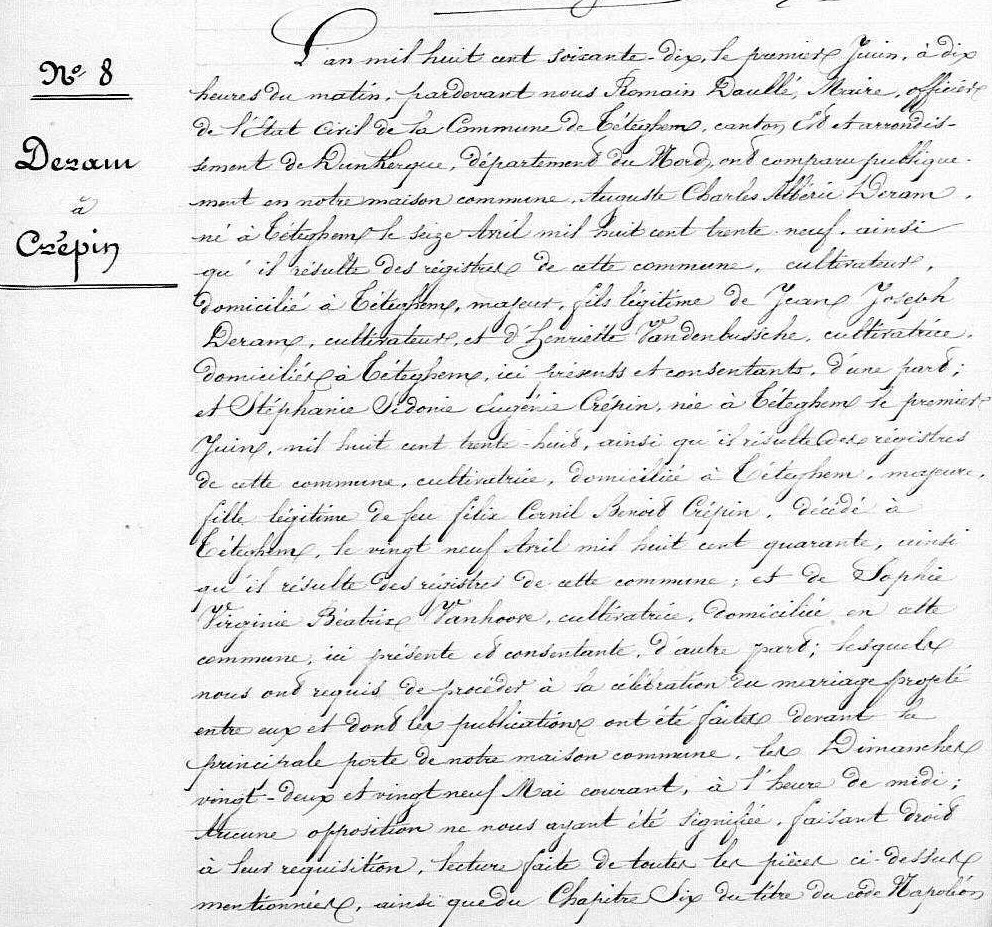 Nº 8
Deram
à
Crépin
L'an mil huit cent soixante-dix, le premier Juin, à dix
heures du matin, pardevant nous Romain Daullé, Maire, officier
de l'État Civil de la Commune de Téteghem, canton Est et arrondis-
sement de Dunkerque, département du Nord, ont comparu publique-
ment en notre maison commune, Auguste Charles Albéric Deram,
né à Téteghem le seize Avril mil huit cent trente-neuf, ainsi
qu'il résulte des régistres de cette commune, cultivateur,
domicilié à Téteghem, majeur, fils légitime de Jean Joseph
Deram, cultivateur, et d'Henriette Vandenbussche, cultivatrice,
domiciliés à Téteghem, ici présents et consentants, d'une part;
et Stéphanie Sidonie Eugénie Crépin, née à Téteghem le premier
Juin, mil huit cent trente-huit, ainsi qu'il résulte des régistres
de cette commune, cultivatrice, domiciliée à Téteghem, majeure,
fille légitime de feu félix Cornil Benoit Crépin, décédé à
Téteghem, le vingt neuf Avril mil huit cent quarante, ainsi
qu'il résulte des régistres de cette commune; et de Sophie
Virginie Béatrix Vanhoove, cultivatrice, domiciliée en cette
commune, ici présente et consentante, d'autre part; lesquels
nous ont requis de procéder à la célébration du mariage projeté
entre eux et dont les publications ont été faites devant la
principale porte de notre maison commune, les Dimanches
vingt-deux et vingt neuf Mai courant, à l'heure de midi;
Aucune opposition ne nous ayant été signifiée, faisant droit
à leur requisition, lecture faite de toutes les pièces ci-dessus
mentionnées, ainsi que du Chapitre Six du titre du code Napoléon